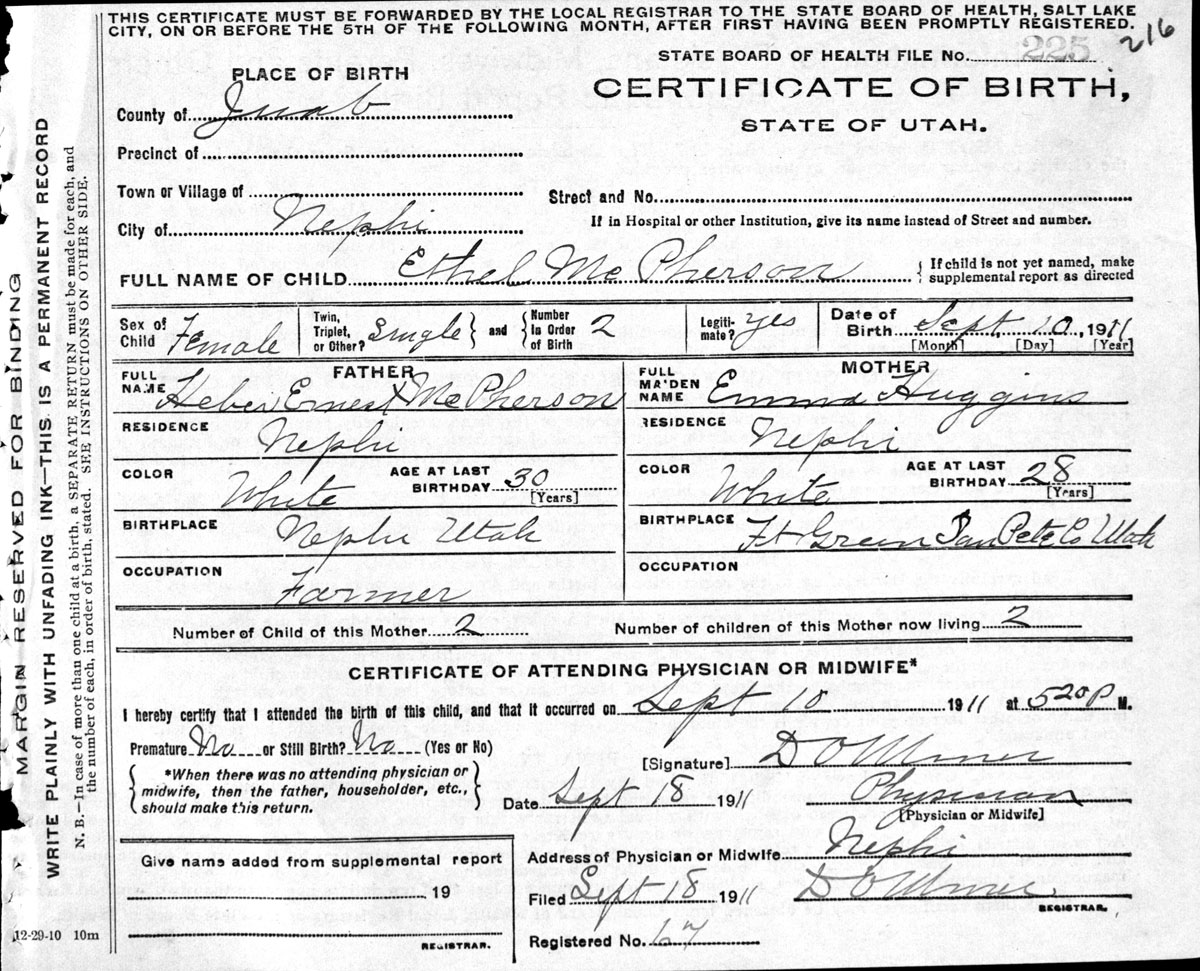 THIS CERTIFICATE MUST BE FORWARDED BY THE LOCAL REGISTRAR TO THE STATE BOARD OF HEALTH, SALT LAKE
CITY, ON OR BEFORE THE 5TH OF THE FOLLOWING MONTH, AFTER FIRST HAVING BEEN PROMPTLY REGISTERED.
216
STATE BOARD OF HEALTH FILE No. 225
PLACE OF BIRTH
CERTIFICATE OF BIRTH,
STATE OF UTAH.
County of Juab
Precinct of
Town or Village of
Street and No.
City of Nephi
If in Hospital or other Institution, give its name instead of Street and number.
FULL NAME OF CHILD Ethel McPherson { If child is not yet named, make
supplemental report as directed
Sex of Child Female
Twin, Triplet, or Other? Single } and { Number In Order of Birth 2
Legiti-mate? yes
Date of Birth Sept 10, 1911
[Month] [Day] [Year]
FATHER
FULL NAME Heber Ernest McPherson
MOTHER
FULL MAIDEN NAME Emma Huggins
RESIDENCE Nephi
RESIDENCE Nephi
COLOR White AGE AT LAST BIRTHDAY 30 [Years]
COLOR White AGE AT LAST BIRTHDAY 28 [Years]
BIRTHPLACE Nephi Utah
BIRTHPLACE Ft Green San Pete Co Utah
OCCUPATION Farmer
OCCUPATION
Number of Child of this Mother 2
Number of children of this Mother now living 2
CERTIFICATE OF ATTENDING PHYSICIAN OR MIDWIFE*
I hereby certify that I attended the birth of this child, and that it occurred on Sept 10 1911 at 520P M.
Premature No or Still Birth? No (Yes or No)
[Signature]
{ *When there was no attending physician or
midwife, then the father, householder, etc.,
should make this return. }
Date Sept 18 1911 Physician
[Physician or Midwife]
Give name added from supplemental report
19
REGISTRAR.
Address of Physician or Midwife Nephi
Filed Sept 18 1911
REGISTRAR.
Registered No. 67
12-29-10 10m
MARGIN RESERVED FOR BINDING
WRITE PLAINLY WITH UNFADING INK—THIS IS A PERMANENT RECORD
N. B.—In case of more than one child at a birth, a SEPARATE RETURN must be made for each, and
the number of each, in order of birth, stated. SEE INSTRUCTIONS ON OTHER SIDE.